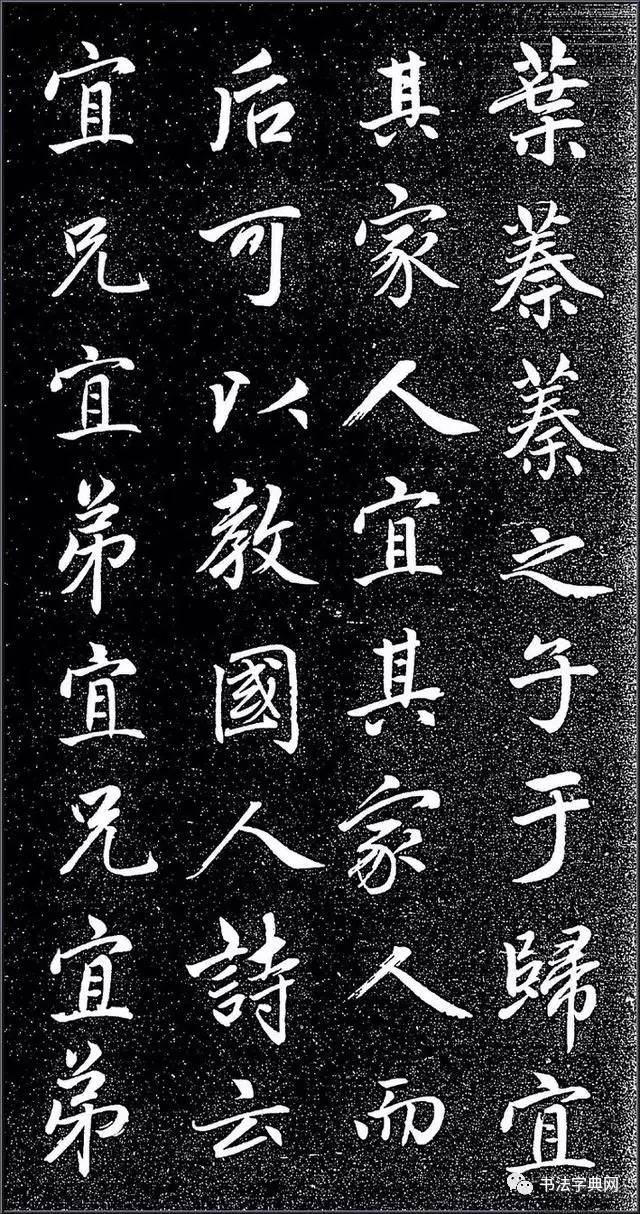 葉蓁蓁之子于歸宜
其家人宜其家人而
后可以教國人詩云
宜兄宜弟宜兄宜弟
书法字典网